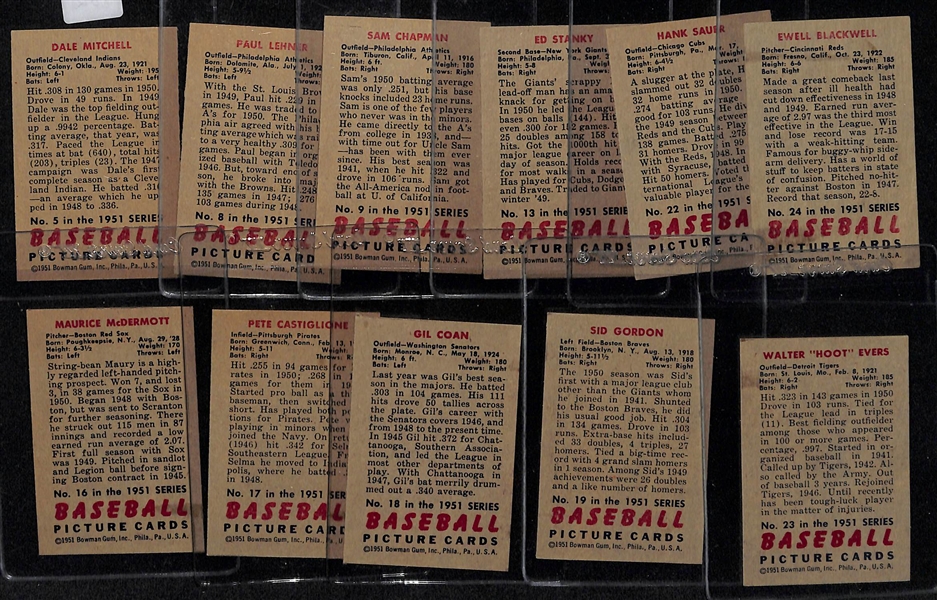 DALE MITCHELL
Outfield—Cleveland Indians
Born: Colony, Okla., Aug. 23, 1921
Height: 6-1 Weight: 195
Bats: Left Throws: Left
Hit .308 in 130 games in 1950.
Drove in 49 runs. In 1949
Dale was the top fielding out-
fielder in the League. Hung
up a .9942 percentage. Bat-
ting average, that year, was
.317. Paced the League in
times at bat (640), total hits
(203), triples (23). The 1947
campaign was Dale's first
complete season as a Cleve-
land Indian. He batted .316
—an average which he up-
ped in 1948 to .336.
No. 5 in the 1951 SERIES
BASEBALL
PICTURE CARDS
©1951 Bowman Gum, Inc., Phila., Pa., U.S.A.
PAUL LEHNER
Outfield—Philadelphia
Born: Dolomite, Ala., July 1,
Height: 5-9½
Bats: Left
With the St. Louis Brow
in 1949, Paul hit .229 in
games. He was traded to
A's for 1950. The Phila
phia air agreed with his h
to a very healthy .309 for
games. Paul began in orga
ized baseball with Toledo
1946. But, toward end of
season, he broke into maj
with the Browns. Hit .24
games during 1947;
103 games during 1948.
No. 8 in the 1951 SERIES
BASEBALL
PICTURE CARDS
©1951 Bowman Gum, Inc., Phila., Pa., U.S.A.
SAM CHAPMAN
Outfield—Philadelphia Athletics
Born: Tiburon, Calif., April 11, 1916
Height: 6 ft. Weight: 180
Bats: Right Throws: Right
Sam's 1950 batting average
was only .251, but his many
knocks included 23 home runs.
Sam is one of the few players
who never was in the minors.
He came directly to the A's
from college in 1938, and—
with time out for Uncle Sam
—has been with them ever
since. His best season was
1941, when he hit .322 and
drove in 106 runs. Sam got on
the All-America nod in foot-
ball at U. of California.
No. 9 in the 1951 SERIES
BASEBALL
PICTURE CARDS
©1951 Bowman Gum, Inc., Phila., Pa., U.S.A.
ED STANKY
Second Base—New York Giants
Born: Philadelphia, Pa., Sept.
Height: 5-8
Bats: Right
The Giants' scrappy
lead-off man has an
knack for getting on b
In 1950 he led the
bases on balls 144). Hit
even .300 for 152 games.
25 doubles among 158 to
hits. Got the 1000th hit
major league career on
day of season. Holds reco
for most walks in
Has played for Cubs, Dodg
and Braves. Traded to Gian
winter '49.
No. 13 in the 1951 SERIES
BASEBALL
PICTURE CARDS
©1951 Bowman Gum, Inc., Phila., Pa., U.S.A.
HANK SAUER
Outfield—Chicago Cubs
Born: Pittsburgh, Pa., Mar. 17,
Height: 6-4½
Bats: Right
A slugger at the plate, H
slammed out 32 doubles
32 home runs in 1950.
.274 batting average
the 1949 season between
Reds and the Cubs. Play
games. Batted .275
Drove in 99 runs.
With the Reds, 1948. In 1
with Syracuse, batted
Hit 50 homers. Voted the
ternational League's
valuable player for the
No. 22 in the 1951 SERIES
BASEBALL
PICTURE CARDS
©1951 Bowman Gum, Inc., Phila., Pa., U.S.A.
EWELL BLACKWELL
Pitcher—Cincinnati Reds
Born: Fresno, Calif., Oct. 23, 1922
Height: 6-6 Weight: 185
Bats: Right Throws: Right
Made a great comeback last
season after ill health had
cut down effectiveness in 1948
and 1949. Earned run aver-
age of 2.97 was the third most
effective in the League. Win
and lose record was 17-15
with a weak-hitting team.
Famous for buggy-whip side-
arm delivery. Has a world of
stuff to keep batters in state
of confusion. Pitched no-hit-
ter against Boston in 1947.
Record that season, 22-8.
No. 24 in the 1951 SERIES
BASEBALL
PICTURE CARDS
©1951 Bowman Gum, Inc., Phila., Pa., U.S.A.
MAURICE McDERMOTT
Pitcher—Boston Red Sox
Born: Poughkeepsie, N.Y., Aug. 29, '28
Height: 6-3½ Weight: 170
Bats: Left Throws: Left
String-bean Maury is a high-
ly regarded left-handed pitch-
ing prospect. Won 7, and lost
3, in 38 games for the Sox in
1950. Began 1948 with Bos-
ton, but was sent to Scranton
for further seasoning. There
he struck out 115 men in 87
innings and recorded a low
earned run average of 2.07.
First full season with Sox
was 1949. Pitched in sandlot
and Legion ball before sign-
ing Boston contract in 1945.
No. 16 in the 1951 SERIES
BASEBALL
PICTURE CARDS
©1951 Bowman Gum, Inc., Phila., Pa., U.S.A.
PETE CASTIGLIONE
Infield—Pittsburgh Pirates
Born: Greenwich, Conn., Feb. 13,
Height: 5-11
Bats: Right
Hit .255 in 94 games for
rates in 1950; .268
games for them in
Started pro ball as a
baseman, then switched
short. Has played both po
tions for Pirates. Pete
playing in minors when
joined the Navy. On return
(1946) hit .342 for Selm
Southeastern League. Fr
Selma he moved to Indiana
polis, where he batted
in 1948.
No. 17 in the 1951 SERIES
BASEBALL
PICTURE CARDS
©1951 Bowman Gum, Inc., Phila., Pa., U.S.A.
GIL COAN
Outfield—Washington Senators
Born: Monroe, N. C., May 18, 1924
Height: 6 ft. Weight: 180
Bats: Left Throws: Right
Last year was Gil's best sea-
son in the majors. He batted
.303 in 104 games. His 111
hits drove 50 tallies across
the plate. Gil's career with
the Senators covers 1946, and
from 1948 to the present time.
In 1945 Gil hit .372 for Chat-
tanooga, Southern Associa-
tion, and led the league in
most other departments of
play. With Chattanooga in
1947, Gil's bat merrily drum-
med out a .340 average.
No. 18 in the 1951 SERIES
BASEBALL
PICTURE CARDS
©1951 Bowman Gum, Inc., Phila., Pa., U.S.A.
SID GORDON
Left Field—Boston Braves
Born: Brooklyn, N.Y., Aug. 13, 1918
Height: 5-11½ Weight: 180
Bats: Right Throws: Right
The 1950 season was Sid's
first with a major league club
other than the Giants whom
he joined in 1941. Shunted
to the Boston Braves, he did
his usual good job. Hit .304
in 134 games. Drove in 103
runs. Extra-base hits includ-
ed 33 doubles, 4 triples, 27
homers. Tied a big-time rec-
ord with 4 grand slam homers
in 1 season. Among Sid's 1949
achievements were 26 doubles
and a like number of homers.
No. 19 in the 1951 SERIES
BASEBALL
PICTURE CARDS
©1951 Bowman Gum, Inc., Phila., Pa., U.S.A.
WALTER "HOOT" EVERS
Outfield—Detroit Tigers
Born: St. Louis, Mo., Feb. 8, 1921
Height: 6-2 Weight: 185
Bats: Right Throws: Right
Hit .323 in 143 games in 1950
Drove in 103 runs. Tied for
the League lead in triples
(11). Best fielding outfielder
among those who appeared
in 100 or more games. Per-
centage, .997. Started in or-
ganized baseball in 1941.
Called up by Tigers, 1942. Al-
so called by the Army. Out
of baseball 3 years. Rejoined
Tigers, 1946. Until recently
has been tough-luck player
in the matter of injuries.
No. 23 in the 1951 SERIES
BASEBALL
PICTURE CARDS
©1951 Bowman Gum, Inc., Phila., Pa., U.S.A.